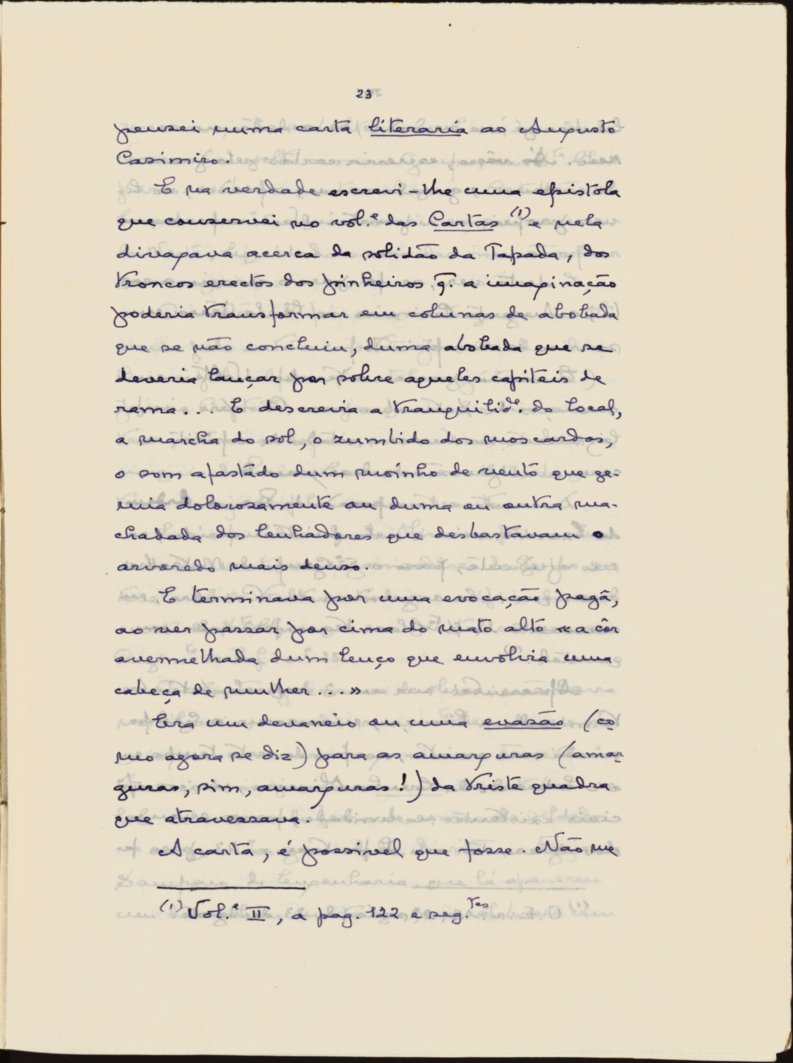 23
pensei numa carta literaria ao Augusto
Casimiro.
E na verdade escrevi-lhe uma epistola
que conservei no vol.e das Cartas (1) e nela
divagava acerca da solidão da Tapada, dos
troncos erectos dos pinheiros q. a imaginação
poderia transformar em colunas de abobada
que se não concluiu, duma abobada que se
deveria lançar por sobre aqueles capiteis de
rama... E descrevia a tranquilid.e do local,
a marcha do sol, o zumbido dos moscardos,
o som afastádo dum moínho de vento que ge-
mia dolorosamente ou duma ou outra ma-
chadada dos lenhadores que desbastavam o
arvoredo mais denso.
E terminava por uma evocação pagã,
ao ver passar por cima do mato alto «a côr
avermelhada dum lenço que envolvia uma
cabeça de mulher...»
Era um devaneio ou uma evasão (co-
mo agora se diz) para as amarguras (amar-
guras, sim, amarguras!) da triste quadra
que atravessava.
A carta, é possivel que fosse. Não me
(1) Vol.e II, a pag. 122 e seg.tes